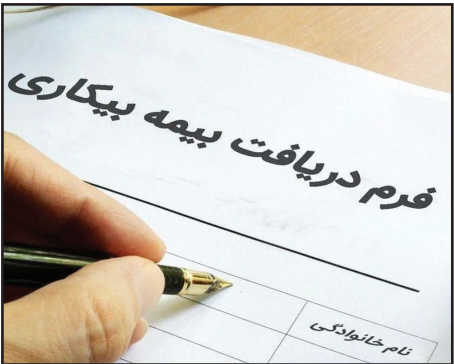 فرم دریافت بیمه بیکاری
نام خانوادگی